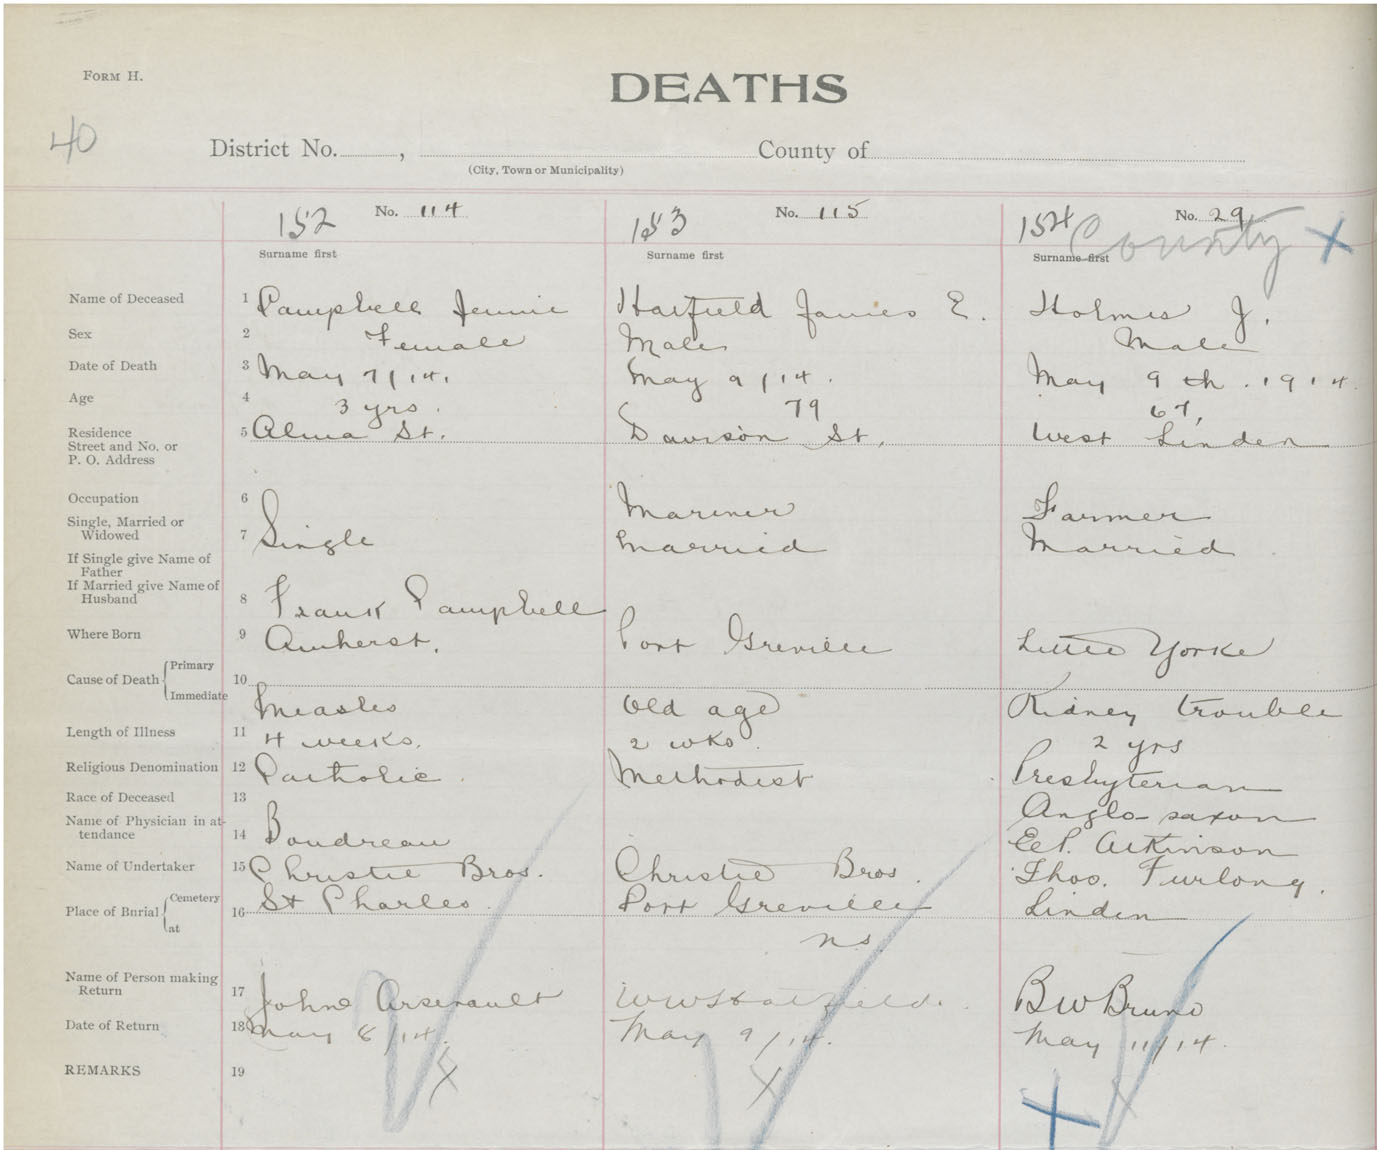 FORM H.
DEATHS
40
District No. , County of
(City, Town or Municipality)
152 No. 114 153 No. 115 154 No. 29
County X
Surname first Surname first Surname first
Name of Deceased 1 Campbell Jennie Hatfield James E. Holmes J.
Sex 2 Female Male Male
Date of Death 3 May 7/14. May 9/14. May 9th. 1914.
Age 4 3 yrs. 79 67,
Residence
Street and No. or 5 Alma St. Davison St. West Linden
P. O. Address
Occupation 6 Mariner Farmer
Single, Married or
Widowed 7 Single Married Married
If Single give Name of
Father
If Married give Name of
Husband 8 Frank Campbell
Where Born 9 Amherst. Port Greville Little Yorke
Cause of Death Primary
10
Immediate Measles Old age Kidney trouble
Length of Illness 11 4 weeks. 2 wks. 2 yrs
Religious Denomination 12 Catholic. Methodist Presbyterian
Race of Deceased 13 Anglo-saxon
Name of Physician in at-
tendance 14 Boudreau Atkinson
Name of Undertaker 15 Christie Bros. Christie Bros. Thos. Furlong.
Place of Burial Cemetery 16 St Charles. Port Greville Linden
at ns
Name of Person making
Return 17 John Arsenault W W Hatfield. B W Bruno
Date of Return 18 May 8/14. May 9/14. May 11/14.
REMARKS 19 X X X